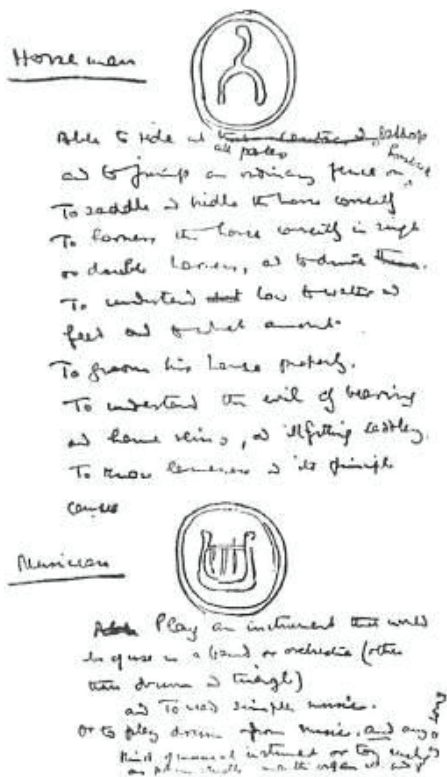 Horseman
Able to ride at all paces
and to jump an ordinary fence on horseback
To saddle & bridle the horse correctly
To harness the horse correctly in single
or double harness, and to drive
To understand how to water &
feed and to what amount.
To groom his horse properly.
To understand the evil of bearing
and hame reins, & ill fitting saddlery.
To know lameness & its principle
causes
Musician
Play an instrument that would
be of use in a band or orchestra (other
than drum & triangle)
and To read simple music.
Or to play drum from music. and any
kind of musical instrument or toy such
as